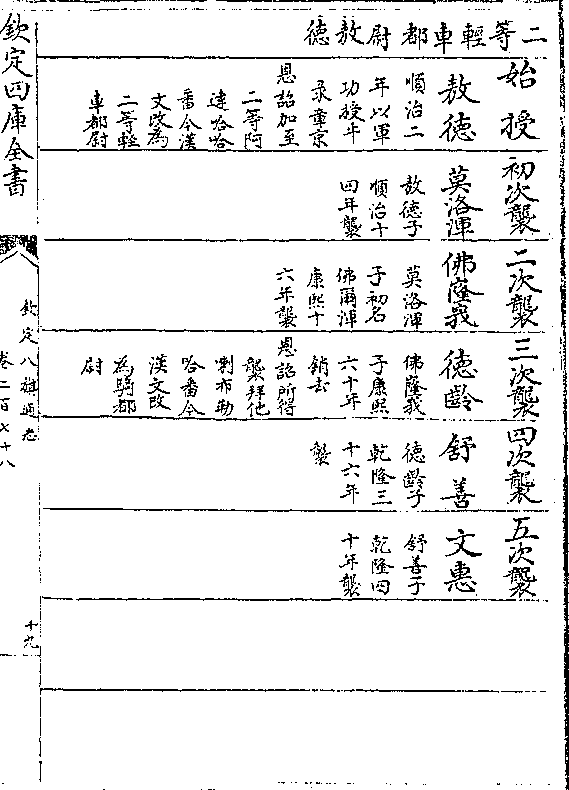 二等輕車都尉敖德
始授
敖德
順治二
年以軍
功授牛
录章京
恩詔加至
二等阿
達哈哈
番今漢
文改為
二等輕
車都尉
初次襲
莫洛渾
敖德子
順治十
四年襲
二次襲
佛蔭義
莫洛渾
子初名
佛爾渾
康熙十
六年襲
三次襲
德齡
佛蔭義
子康熙
六十年
銷去
恩詔所得
襲拜他
喇布勒
哈番今
漢文改
為騎都
尉
四次襲
舒善
德齡子
乾隆三
十六年
襲
五次襲
文惠
舒善子
乾隆四
十年襲
欽定四庫全書
欽定八旗通志
卷二百七十八
十九